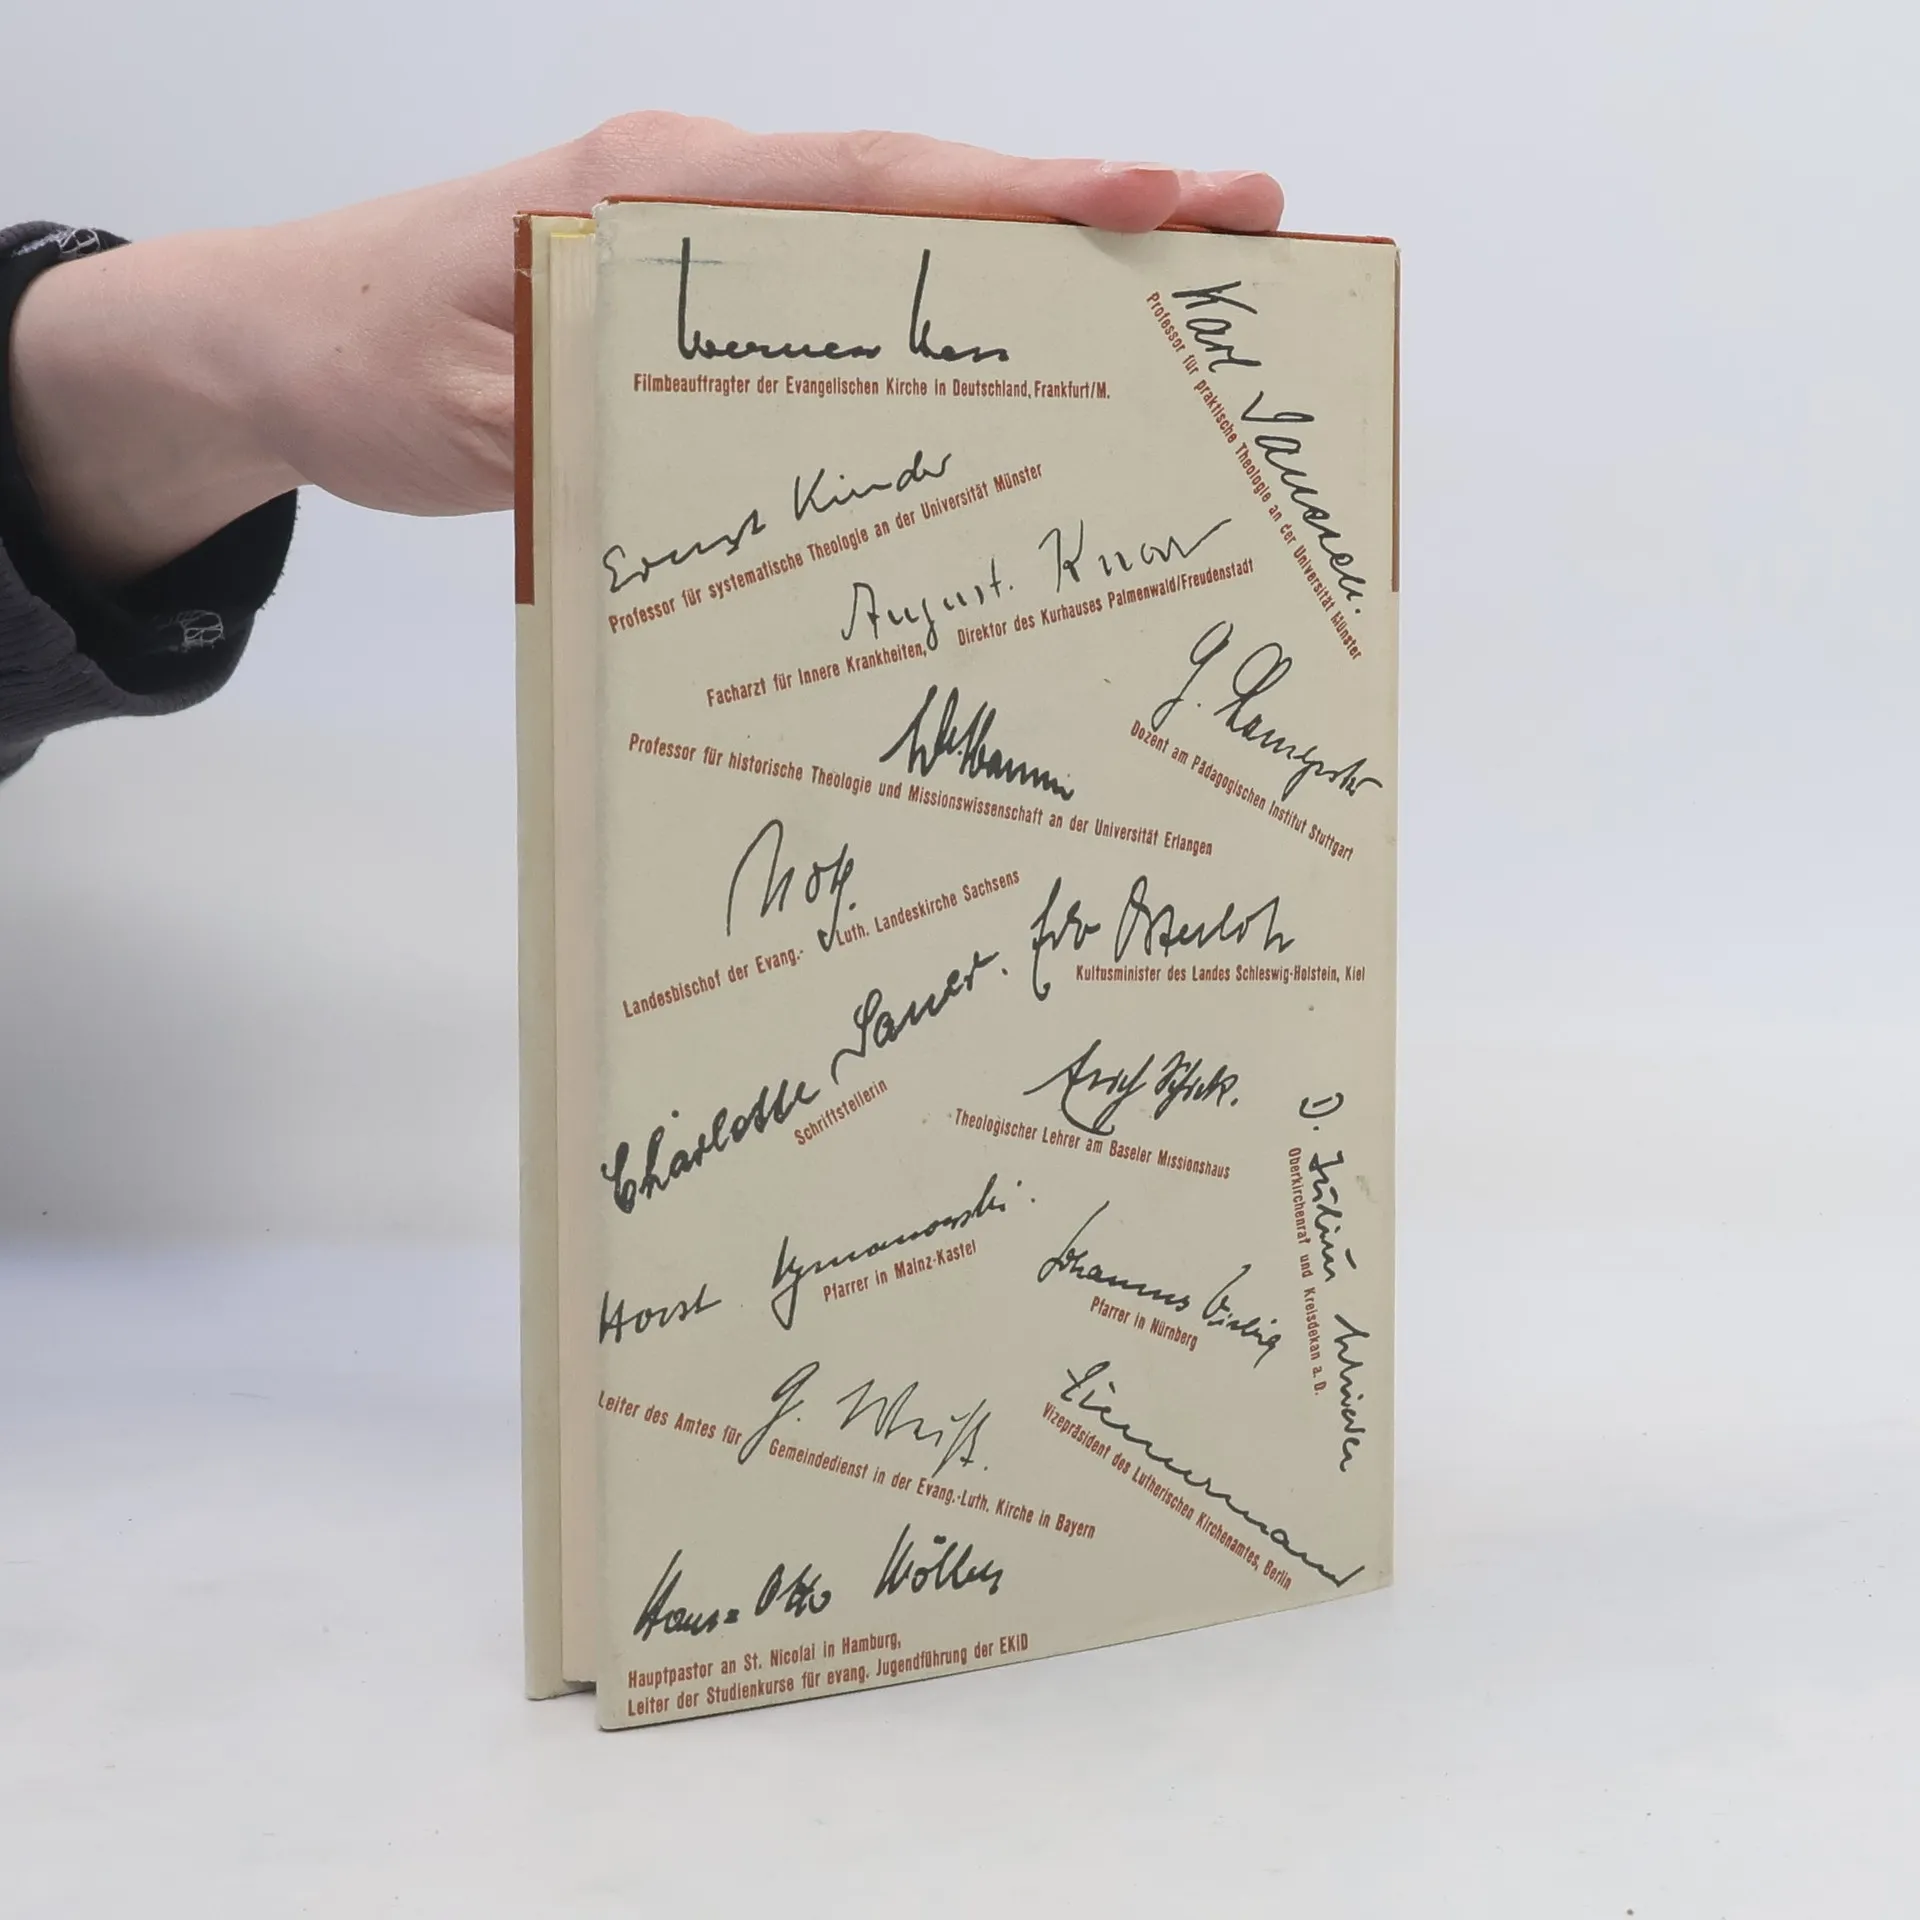 Werner Hess
Filmbeauftragter der Evangelischen Kirche in Deutschland, Frankfurt/M.
Karl Janssen.
Professor für praktische Theologie an der Universität Münster
Ernst Kinder
Professor für systematische Theologie an der Universität Münster
August Knorr
Facharzt für Innere Krankheiten, Direktor des Kurhauses Palmenwald/Freudenstadt
G. Lamparter
Dozent am Pädagogischen Institut Stuttgart
W. Maurer
Professor für historische Theologie und Missionswissenschaft an der Universität Erlangen
Noth.
Landesbischof der Evang.-Luth. Landeskirche Sachsens
Edo Osterloh
Kultusminister des Landes Schleswig-Holstein, Kiel
Charlotte Sauer.
Schriftstellerin
Erich Schick.
Theologischer Lehrer am Baseler Missionshaus
D. Julius Schieder
Oberkirchenrat und Kreisdekan a. D.
Horst Symanowski.
Pfarrer in Mainz-Kastel
Johannes Viebig
Pfarrer in Nürnberg
G. Weiß.
Leiter des Amtes für Gemeindedienst in der Evang.-Luth. Kirche in Bayern
Zimmermann
Vizepräsident des Lutherischen Kirchenamtes, Berlin
Hans-Otto Wölber
Hauptpastor an St. Nicolai in Hamburg,
Leiter der Studienkurse für evang. Jugendführung der EKiD